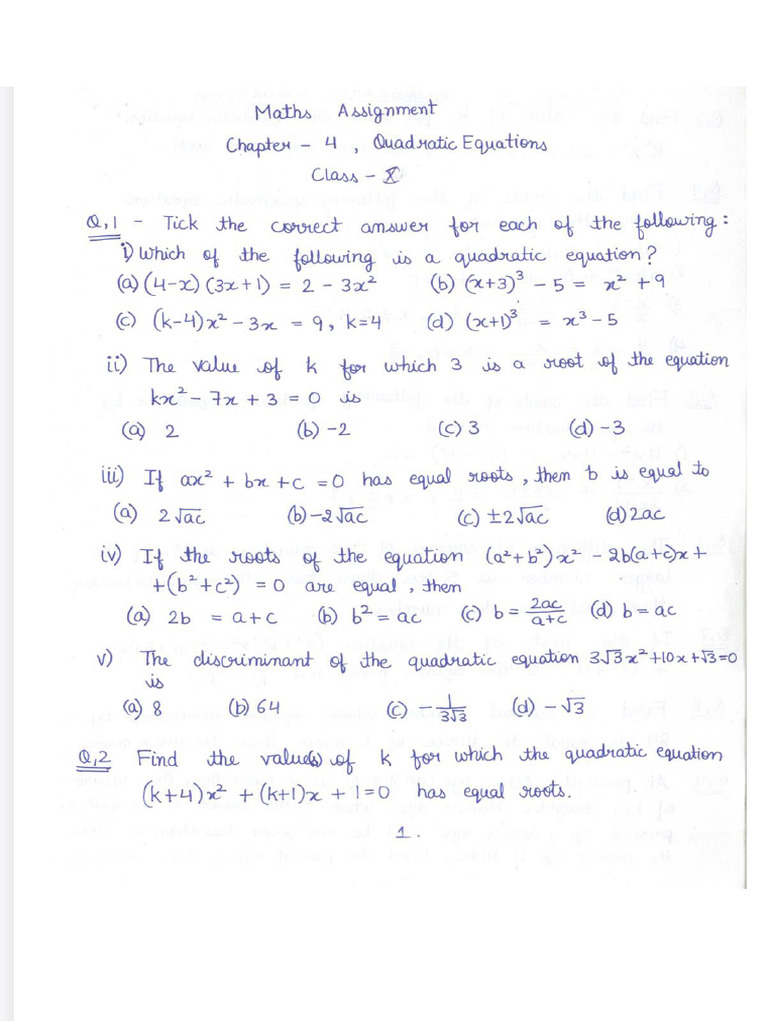 Maths Assignment
Chapter - 4 , Quadratic Equations
Class - X
Q,1 - Tick the correct answer for each of the following :
i) Which of the following is a quadratic equation ?
(a) (4-x) (3x+1) = 2 - 3x² (b) (x+3)³ - 5 = x² + 9
(c) (k-4)x² - 3x = 9, k=4 (d) (x+1)³ = x³ - 5
ii) The value of k for which 3 is a root of the equation
kx² - 7x + 3 = 0 is
(a) 2 (b) -2 (c) 3 (d) -3
iii) If ax² + bx + c = 0 has equal roots , then b is equal to
(a) 2√ac (b) -2√ac (c) ±2√ac (d) 2ac
iv) If the roots of the equation (a²+b²)x² - 2b(a+c)x +
+(b²+c²) = 0 are equal , then
(a) 2b = a+c (b) b² = ac (c) b = 2ac/a+c (d) b = ac
v) The discriminant of the quadratic equation 3√3x²+10x+√3=0
is
(a) 8 (b) 64 (c) - 1/3√3 (d) -√3
Q,2 Find the value(s) of k for which the quadratic equation
(k+4)x² + (k+1)x + 1=0 has equal roots.
1.